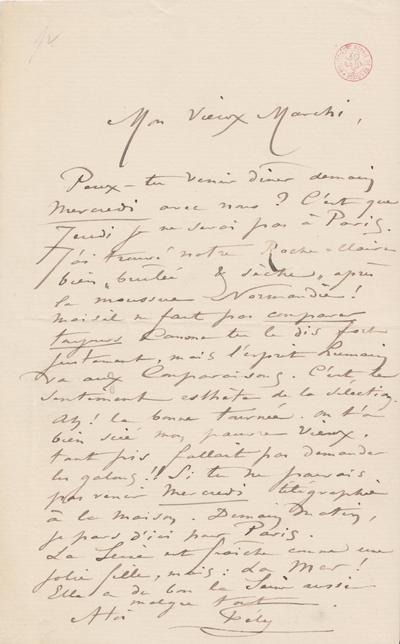 Mon Vieux Marchi,
Peux-tu venir diner demain
Mercredi avec nous? C'est que
Jeudi je ne serai pas à Paris.
J'ai trouvé notre Roche-Claire
bien "brûlée & sèche", après
la mousseuse Normandie!
mais il ne faut pas comparer
toujours comme tu le dis fort
justement, mais l'esprit humain
va aux Comparaisons. C'est le
sentiment esthète de la sélection.
Ah! la bonne tournée. on t'a
bien scié mon pauvre Vieux,
tant pis fallait pas demander
les galons!! Si tu ne pouvais
pas venir Mercredi télégraphie
à la maison. Demain Matin,
je pars d'ici pour Paris.
La Seine est fraîche comme une
jolie fille, mais: La Mer!
Elle a du bon la Seine aussi
malgré tout.
A toi